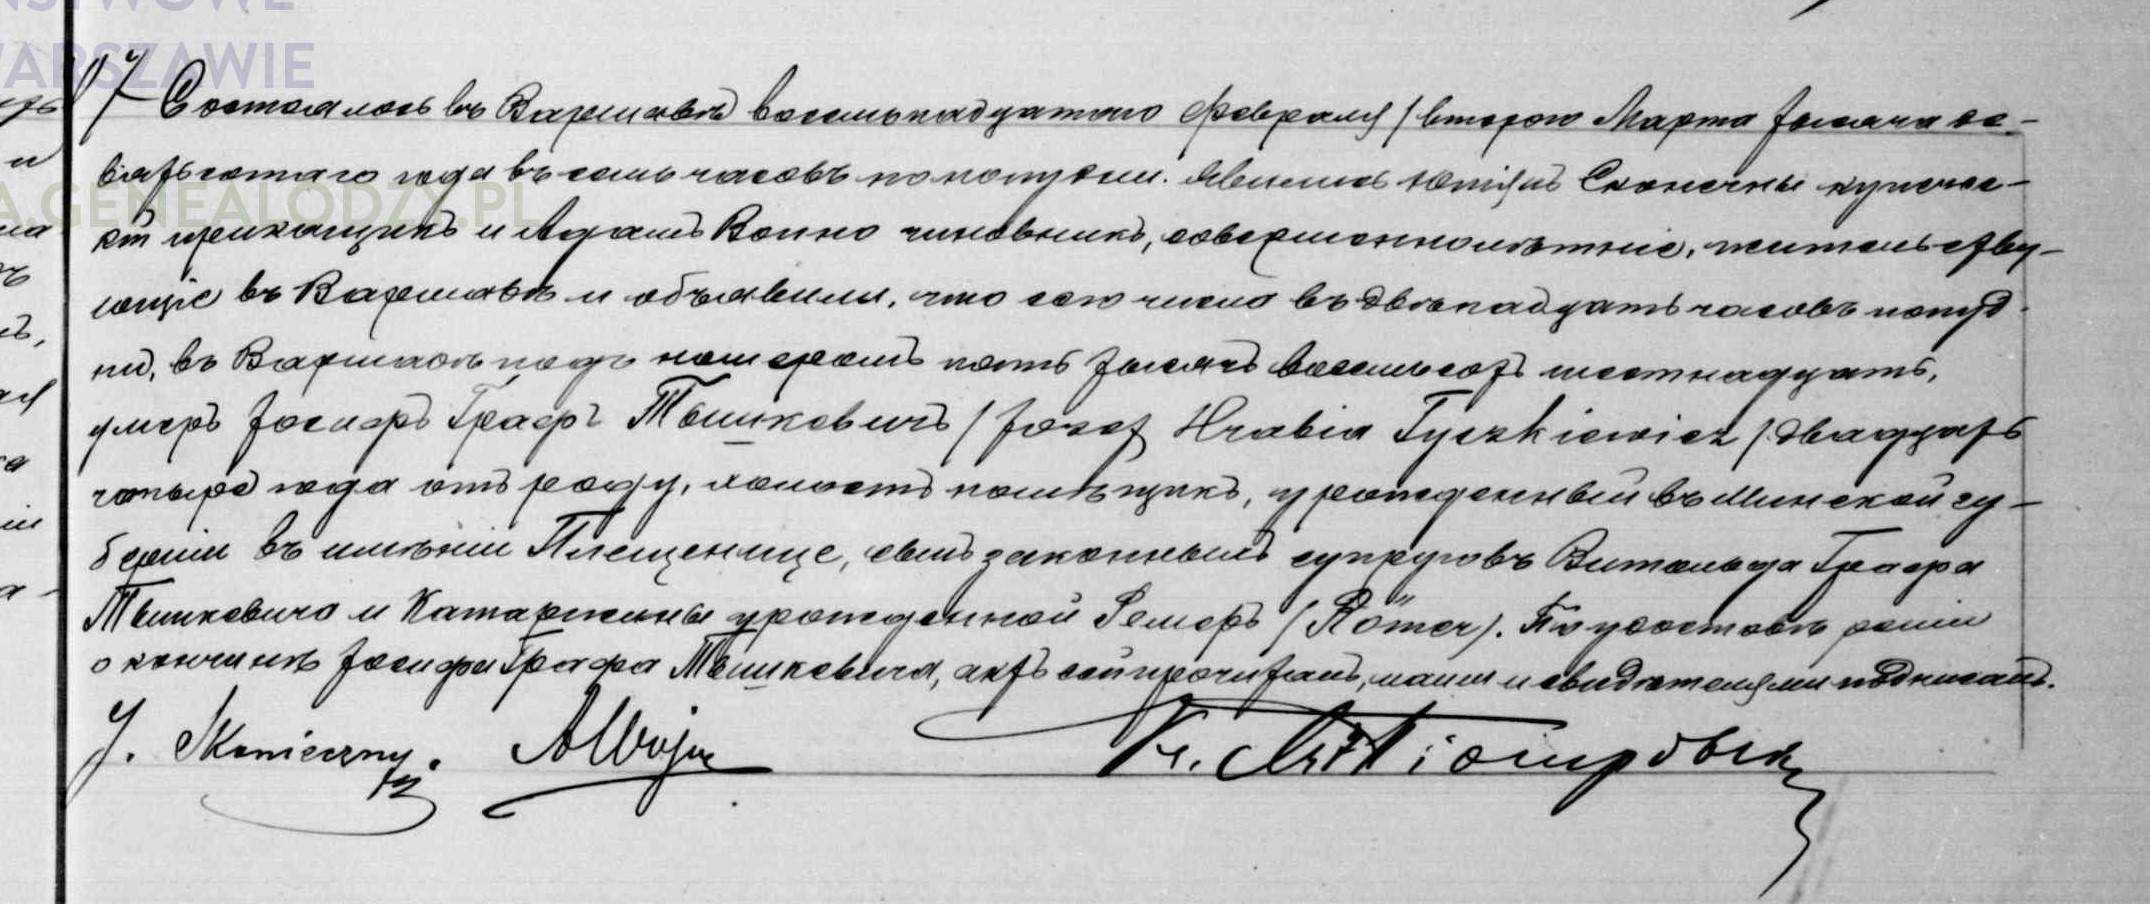 NSTWOWE
WARSZAWIE
A.GENEALODZY.PL
Состоялось въ Варшавѣ восемьнадцатого Февраля / второго Марта тысяча де-
вятьсотаго года въ семь часовъ пополудни. Явились Юліянъ Сконечны купечес-
кій прикащикъ и Адамъ Война чиновникъ, совершеннолѣтніе, жительству-
ющіе въ Варшавѣ и объявили, что сего числа въ двѣнадцать часовъ попуд-
ни, въ Варшавѣ подъ номеромъ пять тысячъ восемьсотъ шестнадцать,
умеръ Іосифъ Графъ Тышкевичъ / Józef Hrabia Tyszkiewicz / двадцать
четыре года отъ роду, холостъ помѣщикъ, урожденный въ Минской гу-
берніи въ имѣніи Плещенице, сынъ законныхъ супруговъ Витольда Графа
Тышкевича и Катаржины урожденной Ремеръ / Römer). По удостовѣреніи
о кончинѣ Іосифа Графа Тышкевича, актъ сей прочитанъ, нами и свидѣтелями подписанъ.
J. Skonieczny. AWojno